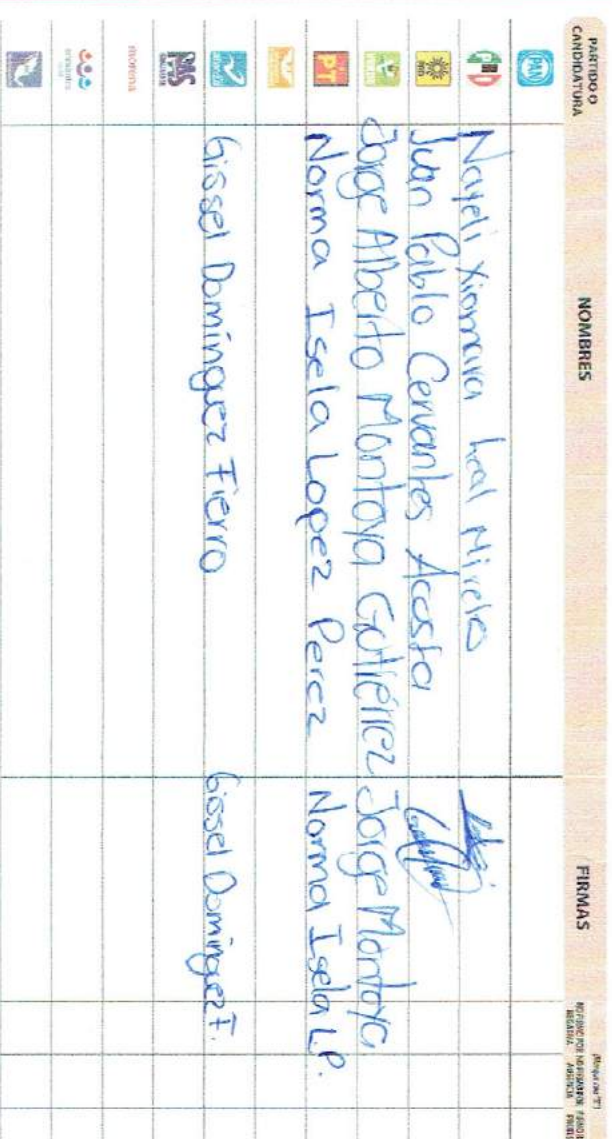 PARTIDO O CANDIDATURA NOMBRES FIRMAS
PAN
PRI Nayeli Xiomara Leal Mireles
PRD Juan Pablo Cervantes Acosta
VERDE Jorge Alberto Montoya Gutiérrez Jorge Montoya
PT Norma Isela Lopez Perez Norma Isela L.P.
alianza Gissel Domínguez Fierro Gissel Domínguez F.
PAS
morena
encuentro